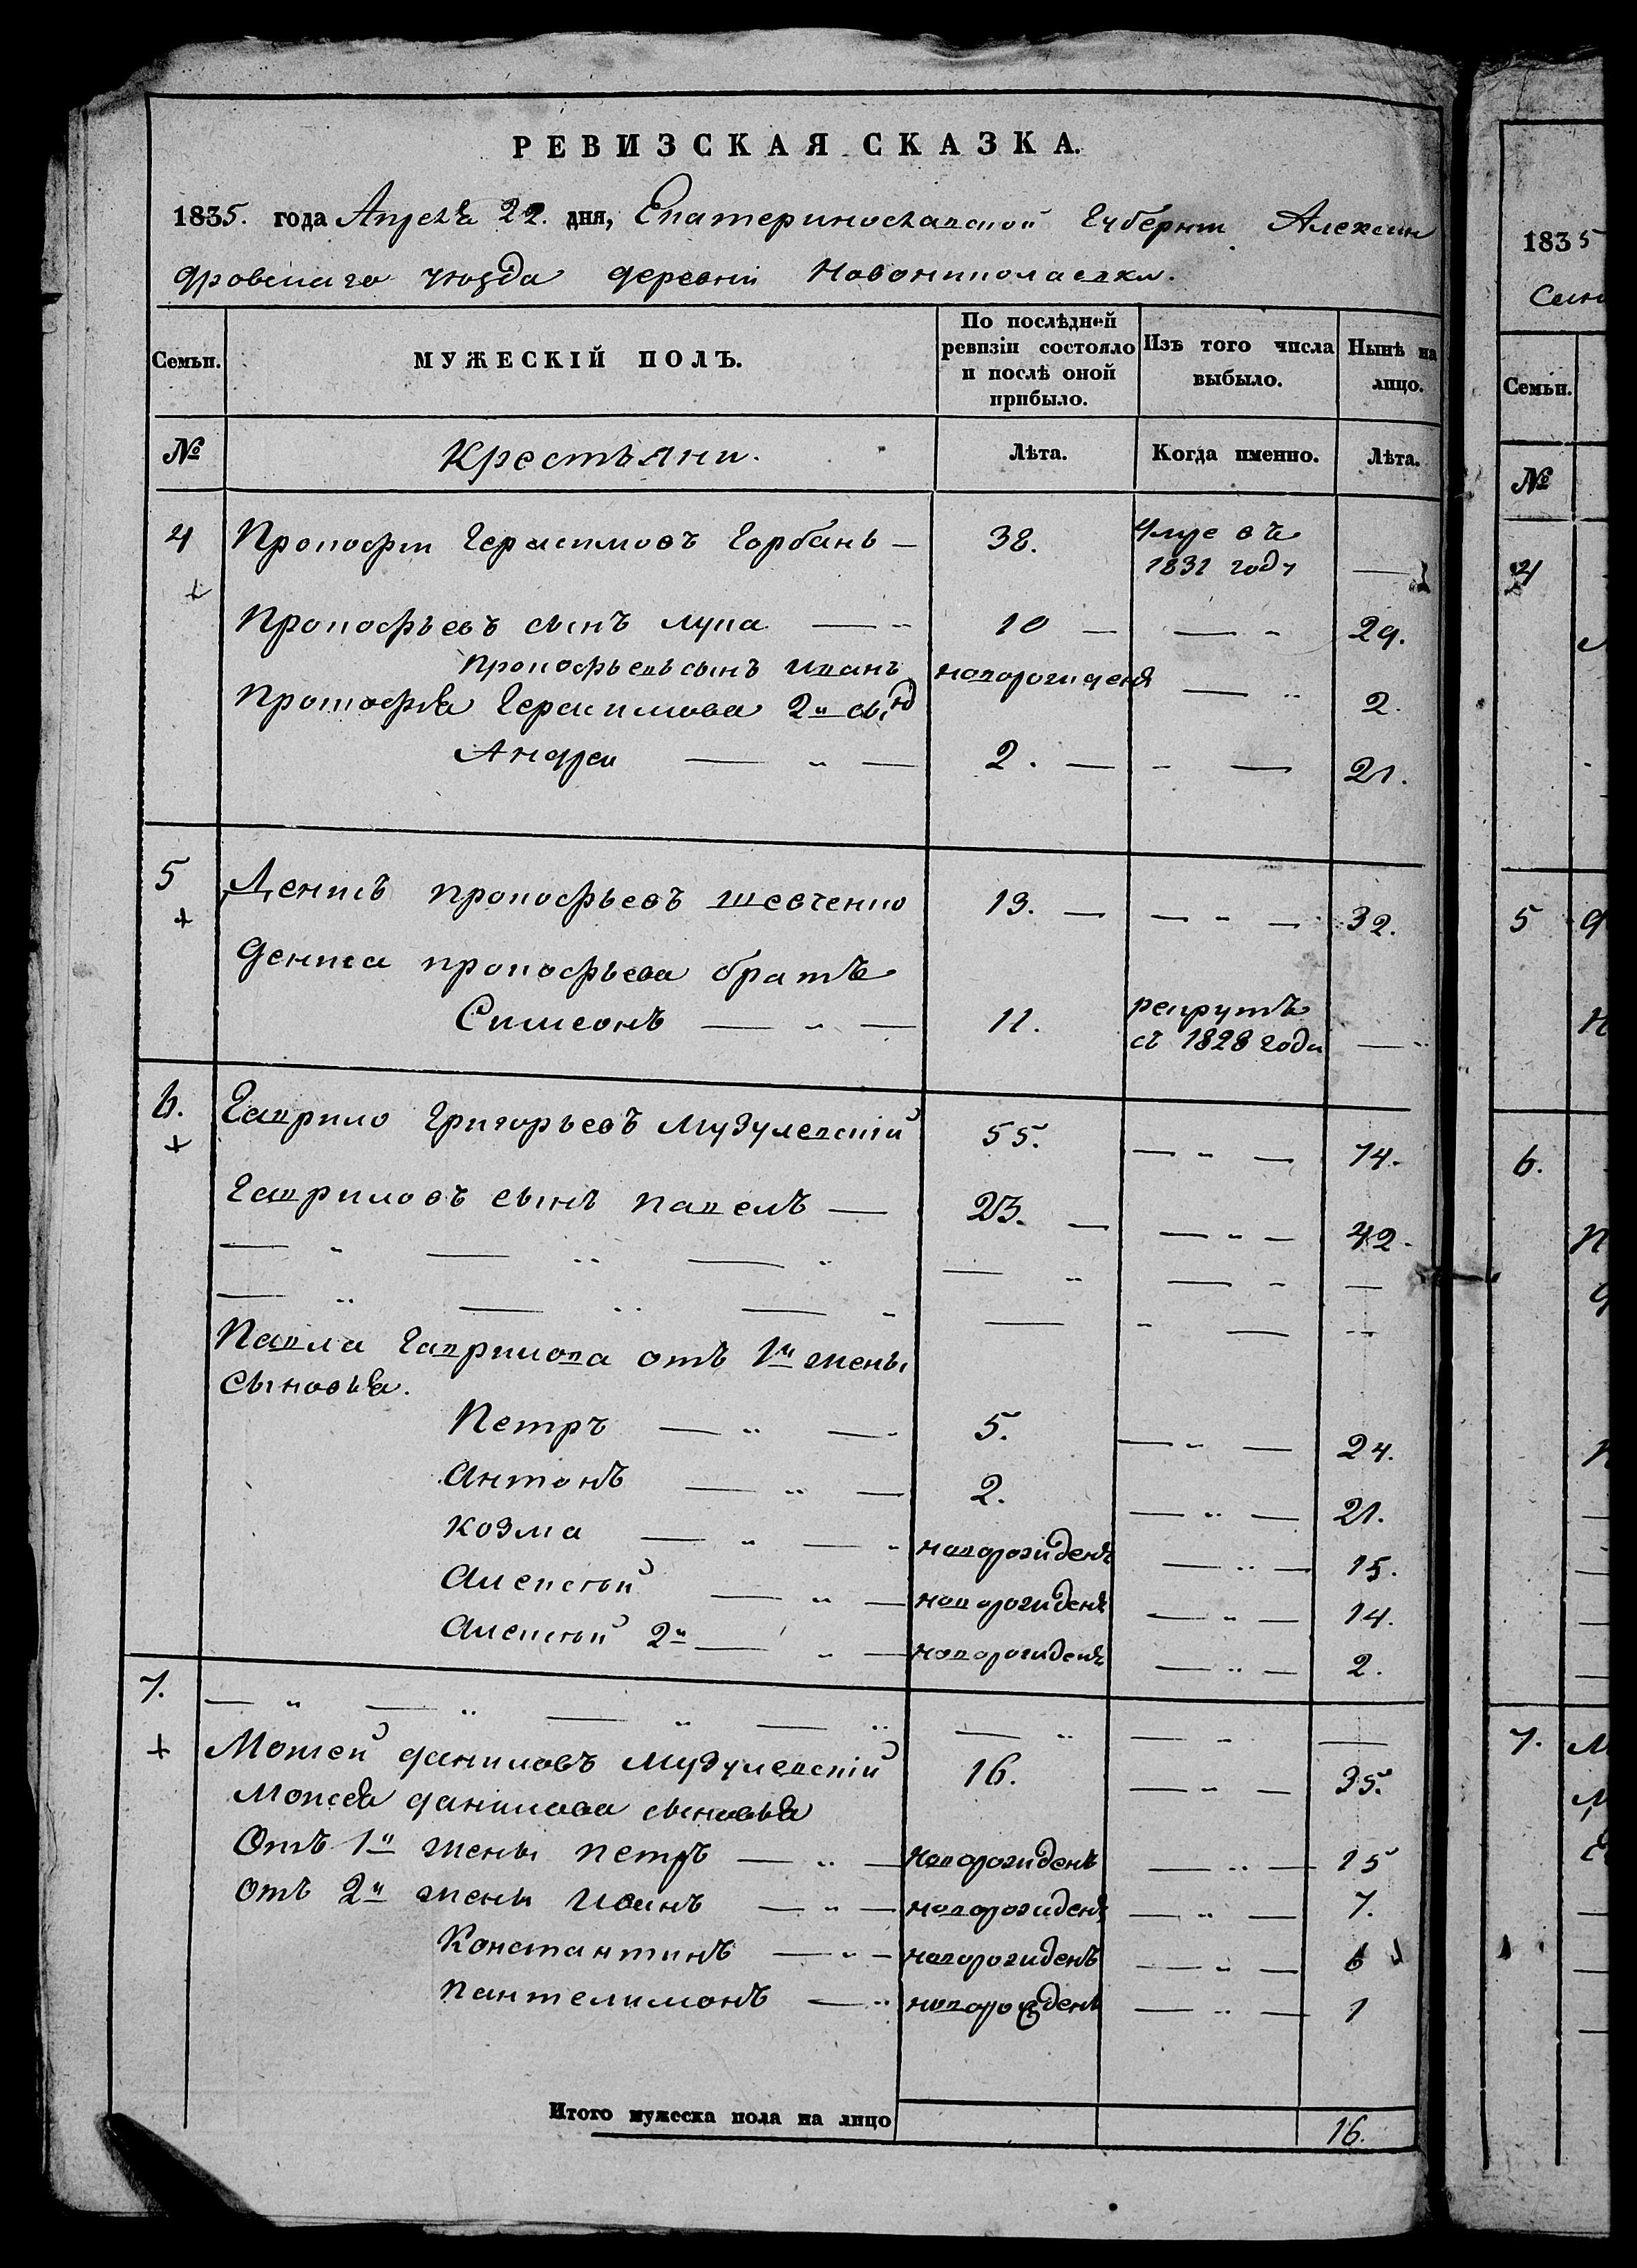 РЕВИЗСКАЯ СКАЗКА.
1835. года Апреля 22. дня, Екатеринославской Губернии Алексан
дровскаго уезда деревни Новониколаевки.
Семьи. МУЖЕСКІЙ ПОЛЪ. По послѣдней ревизіи состояло и послѣ оной прибыло. Изъ того числа выбыло. Нынѣ на лицо.
№ Крестьяни. Лѣта. Когда именно. Лѣта.
4 Прокофiи Герасимовъ Горбань — 38. Умре въ 1831 году —
Прокофьевъ сынъ Лука — 10 — — 29.
Прокофьевъ сынъ Иванъ новорожденъ — 2.
Прокофья Герасимова 2й сынъ
Андрей — 2. — — 21.
5 Денисъ Прокофьевъ Шевченко 13. — — 32.
Дениса Прокофьева братъ
Симеонъ — 11. рекрутъ съ 1828 года —
6. Гаврило Григорьевъ Музулевскій 55. — 74.
Гавриловъ сынъ Павелъ — 23. — — 42.
Павла Гаврилова отъ 1й жены
сыновья.
Петръ — 5. — 24.
Антонъ — 2. — 21.
Козма — новорожденъ — 15.
Алексѣй — новорожденъ — 14.
Алексѣй 2й — новорожденъ — 2.
7. — — — — — — —
Мойсей Даниловъ Музулевскій 16. — 35.
Мойсея Данилова сыновья
Отъ 1й жены Петръ — новорожденъ — 15
отъ 2й жены Иванъ — новорожденъ — 7.
Константинъ — новорожденъ — 6
Пантелимонъ — новорожденъ — 1
Итого мужеска пола на лицо 16.
1835
Семьи.
№
4
5
6.
7.